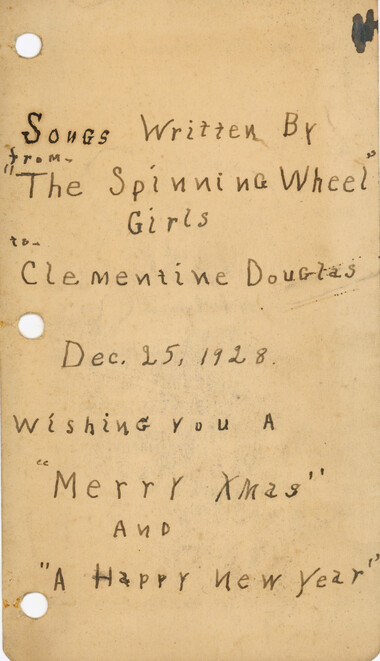 Songs Written By
from-
"The Spinning Wheel"
Girls
to-
Clementine Douglas
Dec. 25, 1928.
Wishing you A
"Merry Xmas"
AND
"A Happy New Year"